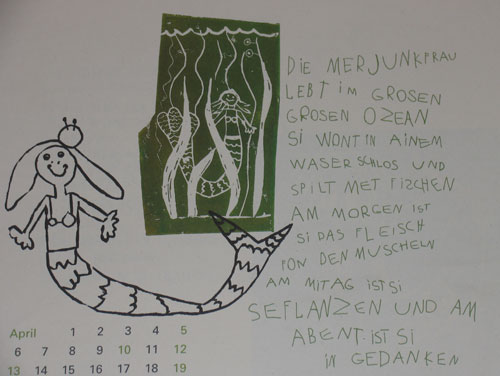 DIE MERJUNKPRAU
LEBT IM GROSEN
GROSEN OZEAN
SI WONT IN AINEM
WASER SCHLOS UND
SPILT MET FIZCHEN
AM MORGEN IST
SI DAS FLEISCH
FON DEN MUSCHELN
AM MITAG IST SI
SEFLANZEN UND AM
ABENT IST SI
IN GEDANKEN
April 1 2 3 4 5
6 7 8 9 10 11 12
13 14 15 16 17 18 19